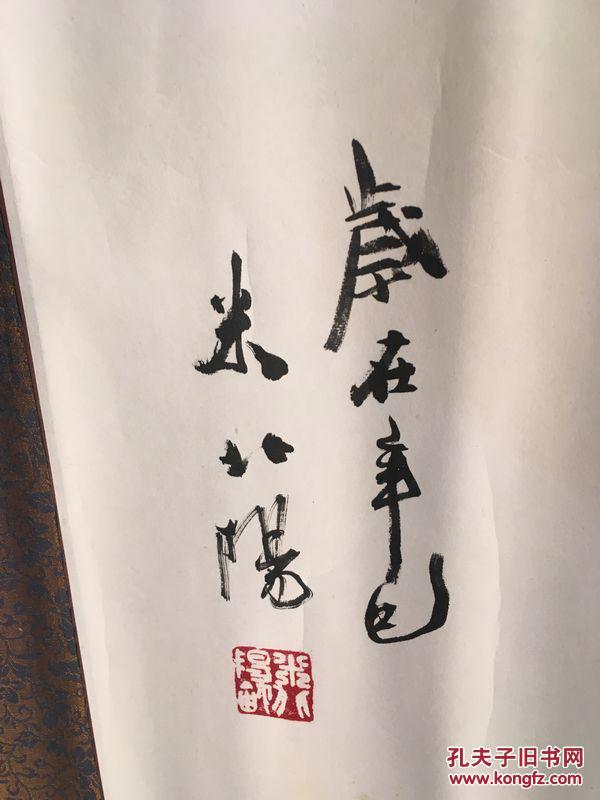 歲在辛巳
米北陽
孔夫子旧书网
www.kongfz.com